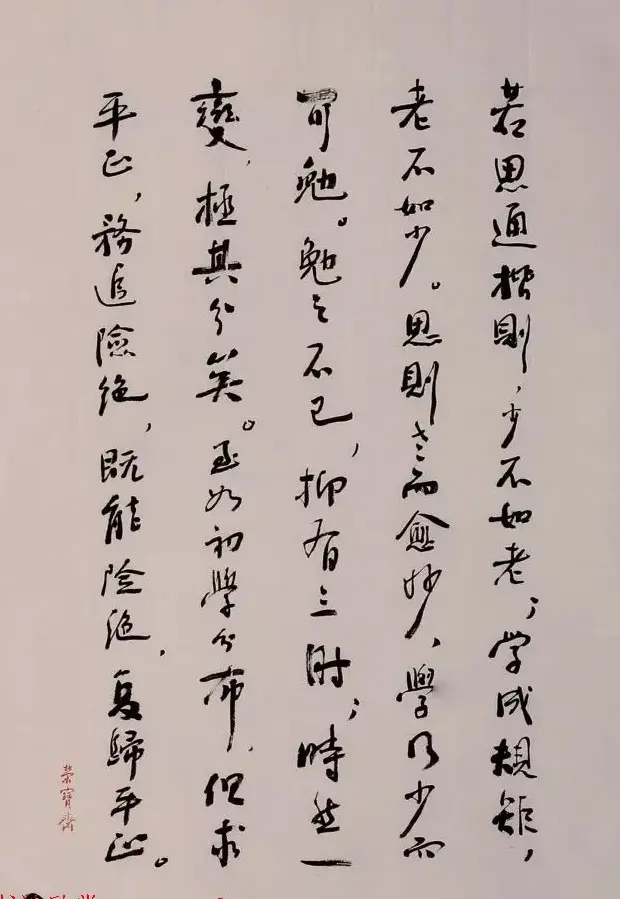 若思通楷則，少不如老；学成規矩，
老不如少。思則老而愈妙，學乃少而
可勉。勉之不已，抑有三时；時然一
變，極其分矣。至如初學分布，但求
平正，務追險絕，既能險絕，复歸平正。
榮寶齋